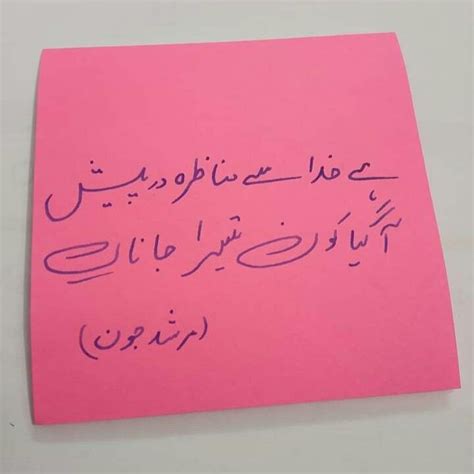 ہے خدا سے مناظرہ درپیش
آ گیا کون تیسرا جاناں
(مرشد جون)